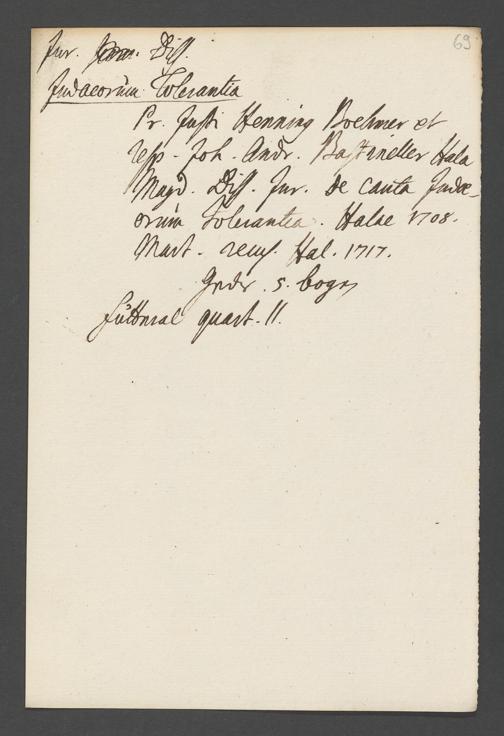 69
Jur. Diss.
Judaeorum Tolerantia
Pr. Justi Henning Boehmer et
resp. Joh. Andr. Bastineller Hala
Magd. Diss. Jur. De cauta Judae-
orum Tolerantia. Halae 1708.
Mart. recus. Hal. 1717.
5. bogn
quart. 11.